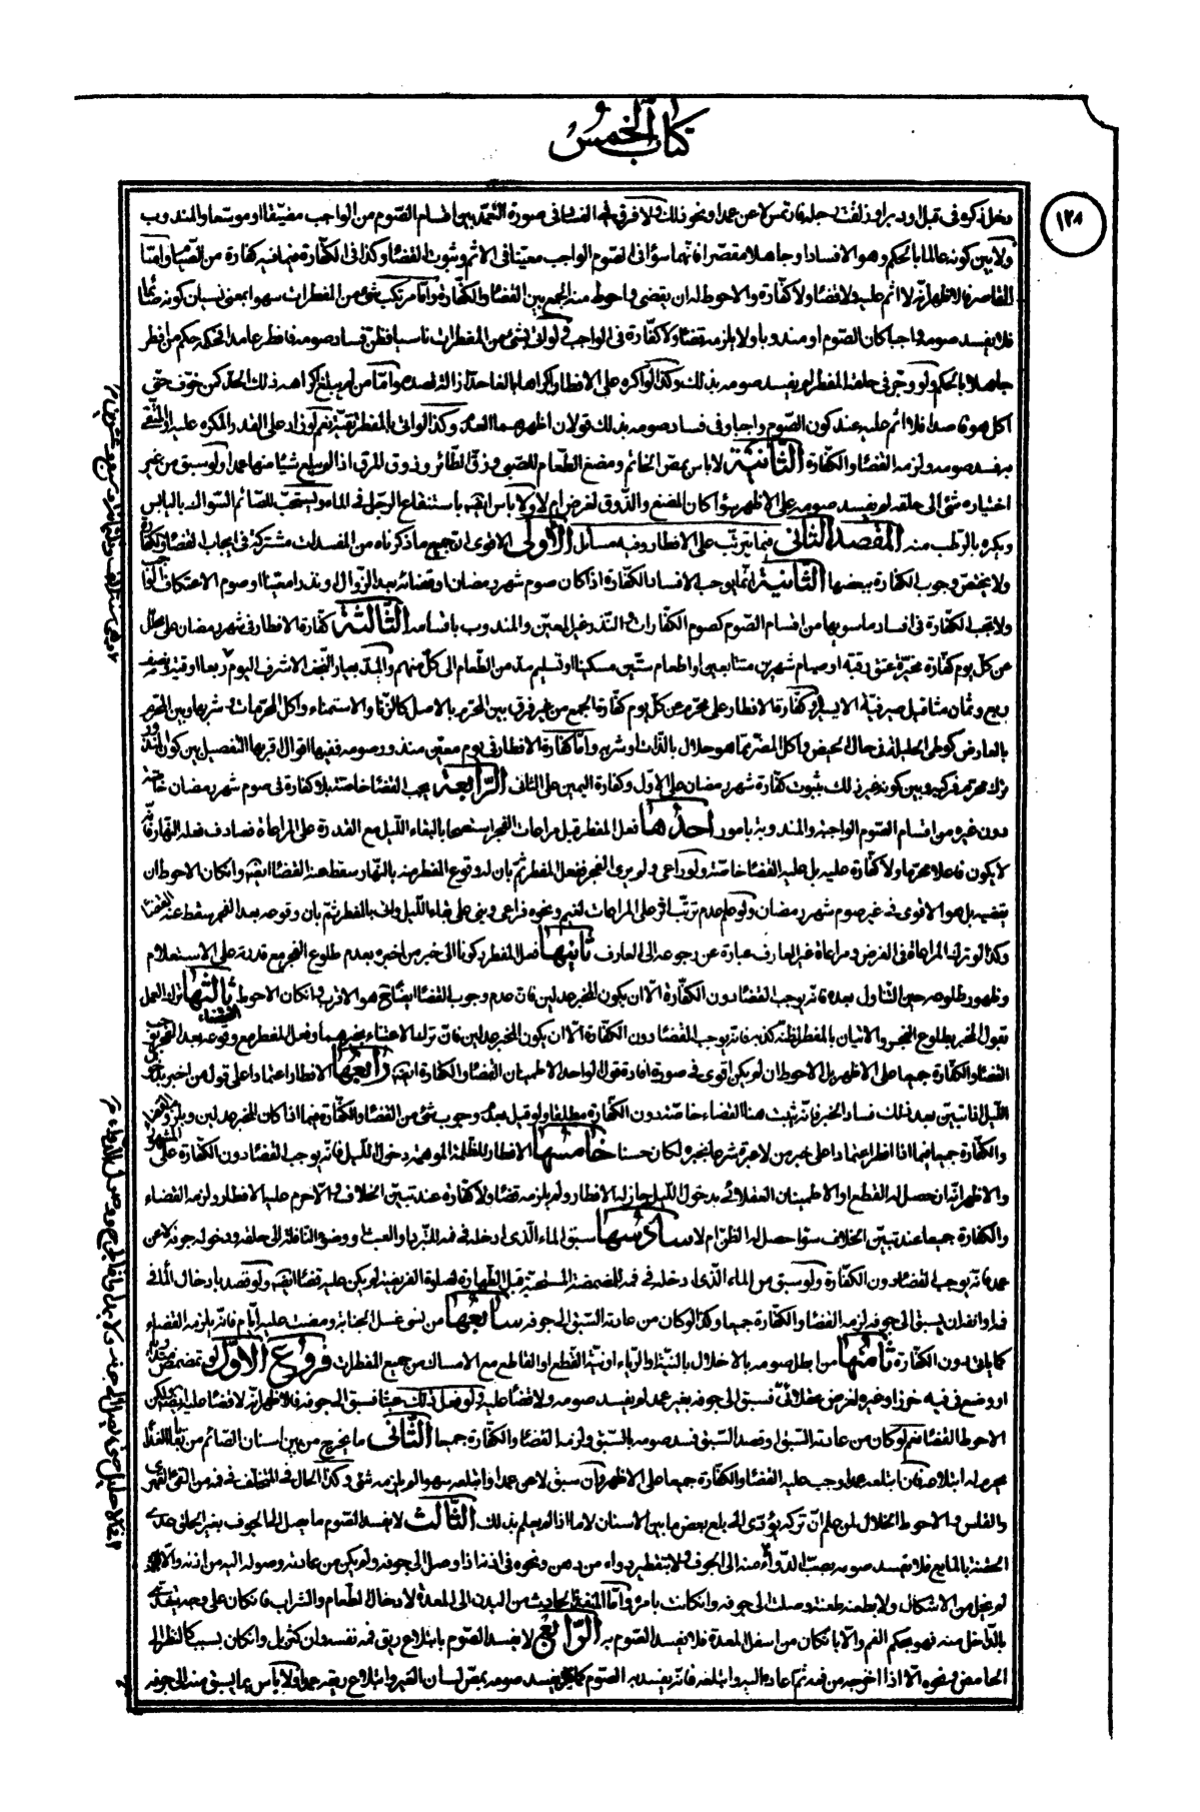 كتاب الخمس
١٢٨
دخل ذكره في قبل او دبر او زلقت رجله فارتمس لا عن عمد او نحو ذلك لا فرق في صورة التعمد بين اقسام الصوم من الواجب مضيقا او موسعا والمندوب
ولا بين كونه عالما بالحكم وهو الافساد او جاهلا مقصرا فانهما سواء في الصوم الواجب معينا في الاثم وثبوت القضاء وكذا في الكفارة فيما فيه كفارة من الصيام واما
القاصر فالاظهر انه لا اثم عليه ولا قضاء ولا كفارة والاحوط له ان يقضي واحوط منه الجمع بين القضاء والكفارة واما مرتكب شئ من المفطرات سهوا بمعنى نسيان كونه صائما
فلا يفسد صومه واجبا كان الصوم او مندوبا ولا يلزمه قضاء ولا كفارة في الواجب ولو اتى بشئ من المفطرات ناسيا فظن فساد صومه فافطر عامدا فحكمه حكم من افطر
جاهلا بالحكم ولو وجر في حلقه المفطر لم يفسد صومه بذلك وكذا لو اكره على الافطار اكراها بالغا حد ازالة القصد واما من لم يبلغ اكراهه ذلك الحد كمن خوف حتى
اكل هو قاصدا فلا اثم عليه عند كون الصوم واجبا وفي فساد صومه بذلك قولان اظهرهما العدم وكذا لو اتى بالمفطر تقية نعم لو زاد على القدر المكره عليه او المتقى
به فسد صومه ولزمه القضاء والكفارة الثانية لا باس بمص الخاتم ومضغ الطعام للصبي وزق الطائر وذوق المرق اذا لم يبلع شيئا منها عمدا ولو سبق من غير
اختياره شئ الى حلقه لم يفسد صومه على الاظهر سواء كان المضغ والذوق لغرض ام لا ولا باس ايضا باستنقاع الرجل في الماء ويستحب للصائم السواك باليابس
ويكره بالرطب منه المقصد الثاني فيما يترتب على الافطار وفيه مسائل الاولى الاقوى ان جميع ما ذكرناه من المفسدات مشتركة في ايجاب القضاء والكفارة
ولا يختص وجوب الكفارة ببعضها الثانية انما يوجب الافساد الكفارة اذا كان صوم شهر رمضان او قضائه بعد الزوال او نذرا معينا او صوم الاعتكاف
ولا تجب الكفارة في افساد ما سويها من اقسام الصوم كصوم الكفارات والنذر غير المعين والمندوب باقسامه الثالثة كفارة الافطار في شهر رمضان على محلل
عن كل يوم كفارة مخيرة عتق رقبة او صيام شهرين متتابعين او اطعام ستين مسكينا او تسليم مد من الطعام الى كل منهم والمد بعيار النجف الاشرف اليوم
وربع وثمان مثاقيل صيرفية الا يسيرا وكفارة الافطار على محرم عن كل يوم كفارة الجمع من غير فرق بين المحرم بالاصل كالزنا والاستمناء واكل المحرمات وشربها وبين المحرم
بالعارض كوطى الحليلة في حال الحيض واكل المضر مما هو حلال بالذات او شربه واما كفارة الافطار في يوم معين منذور صومه ففيها اقوال اقربها التفصيل بين كون
ترك محرم مركبه وبين كونه غير ذلك بثبوت كفارة شهر رمضان على الاول وكفارة اليمين على الثاني الرابعة يجب القضاء خاصة بلا كفارة في صوم شهر رمضان خاصة
دون غيره من اقسام الصوم الواجبة والمندوبة بامور احدها فعل المفطر قبل مراعات الفجر استصحابا لبقاء الليل مع القدرة على المراعاة فصادف فعله النهار فانه
لا يكون فاعلا محرما ولا كفارة عليه بل عليه القضاء خاصة ولو راعى ولم ير الفجر ففعل المفطر ثم بان له وقوع الفطر منه بالنهار سقط عنه القضاء ايضا وان كان الاحوط ان
يقضيه بل هو الاقوى في غير صوم شهر رمضان ولو علم عدم ترتب اثر على المراعات لغيم ونحوه فراعى وبنى على بقاء الليل واتى بالمفطر ثم بان وقوعه بعد الفجر سقط عنه القضاء
وكذا لو ترك المراعاة في الفرض ومراعاة غير العارف عبارة عن رجوعه الى العارف ثانيها فعل المفطر ركونا الى خبر من اخبره بعدم طلوع الفجر مع قدرته على الاستعلام
وظهور طلوعه حين التناول بعده فانه يوجب القضاء دون الكفارة الا ان يكون المخبر عدلين فان عدم وجوب القضاء ايضا ح هو الاقرب وان كان الاحوط القضاء ثالثها ترك العمل
بقول المخبر بطلوع الفجر والاتيان بالمفطر لظنه كذبه فانه يوجب القضاء دون الكفارة الا ان يكون المخبر عدلين فان ترك الاعتناء بخبرهما وفعل المفطر مع وقوعه بعد الفجر يوجب
القضاء والكفارة جميعا على الاظهر بل الاحوط ان لم يكن اقوى في صورة افادة قول الواحد الاطمينان القضاء والكفارة ايضا رابعها الافطار اعتمادا على قول من اخبر بدخول
الليل اذا تبين بعد ذلك فساد الخبر فانه يثبت هنا القضاء خاصة دون الكفارة مطلقا ولو قيل بعدم وجوب شئ من القضاء والكفارة فيما اذا كان المخبر عدلين وبلزوم القضاء
والكفارة جميعا فيما اذا افطر اعتمادا على خبر من لا عبرة شرعا بخبره لكان حسنا خامسها الافطار للظلمة الموهمة دخول الليل فانه يوجب القضاء دون الكفارة على المشهور
والاظهر انه ان حصل له القطع او الاطمينان العقلائي بدخول الليل جاز له الافطار ولم يلزمه قضاء ولا كفارة عند تبين الخلاف والا حرم عليه الافطار ولزمه القضاء
والكفارة جميعا عند تبين الخلاف سواء حصل له الظن ام لا سادسها سبق الماء الذي ادخله في فمه للتبرد او العبث او وضوء النافلة الى حلقه ودخوله جوفه لا عن
عمد فانه يوجب القضاء دون الكفارة ولو سبق من الماء الذي ادخله في فمه للمضمضة المستحبة قبل الطهارة لصلوة الفريضة لم يكن عليه قضاء ايضا ولو قصد بادخال الماء في
فمه او انفه ان يسبق الى جوفه لزمه القضاء والكفارة جميعا وكذا لو كان من عادته السبق الى جوفه سابعها من نسى غسل الجنابة ومضت عليه ايام فانه يلزمه القضاء
كما ياتي دون الكفارة ثامنها من ابطل صومه بالاخلال بالنية او الرياء او نية القطع او القاطع مع الامساك من جميع المفطرات فروع الاول لو تمضمض
او وضع في فيه خرزا وغيره لغرض عقلائي فسبق الى جوفه بغير عمد لم يفسد صومه ولا قضاء عليه ولو فعل ذلك عبثا فسبق الى جوفه فالاظهر انه لا قضاء عليه ايضا ولكن
الاحوط القضاء نعم لو كان من عادته السبق او قصد السبق فسد صومه بالسبق ولزمه القضاء والكفارة جميعا الثاني ما يخرج من بين اسنان الصائم من بقايا الغذاء
يحرم له ابتلاعه فان ابتلعه عمدا وجب عليه القضاء والكفارة جميعا على الاظهر وان سبق لا عن عمد او ابتلعه سهوا لم يلزمه شئ وكذا الحال في المتخلف في فمه من القئ القهري
والقلس والاحوط الخلال لمن علم ان تركه يؤدي الى بلع بعض ما بين الاسنان لا ما اذا لم يعلم بذلك الثالث لا يفسد الصوم ما يصل الى الجوف بغير الحلق عدى
الحقنة بالمايع فلا يفسد صومه بصب الدواء منه الى الجوف ولا بتقطير دواء من دهن ونحوه في اذنه اذا وصل الى جوفه ولم يكن من عادته وصوله اليه من اذنه والا
لم يخل من الاشكال ولا بطعنه طعنة وصلت الى جوفه وان كانت بامره واما المنفذ الحادث من البدن الى المعدة لادخال الطعام والشراب فان كان على وجه يتغذى
بالداخل منه فهو بحكم الفم والا بان كان من اسفل المعدة فلا يفسد الصوم به الرابع لا يفسد الصوم بابتلاع ريق فمه نفسه وان كثر بل وان كان بسبب كالنظر الى
الحامض ونحوه الا اذا اخرجه من فمه ثم اعاده اليه وابتلعه فانه يفسد به الصوم كما يفسد صومه بمص لسان الغير وابتلاع ريقه عمدا ولا باس بما يسبق منه الى جوفه